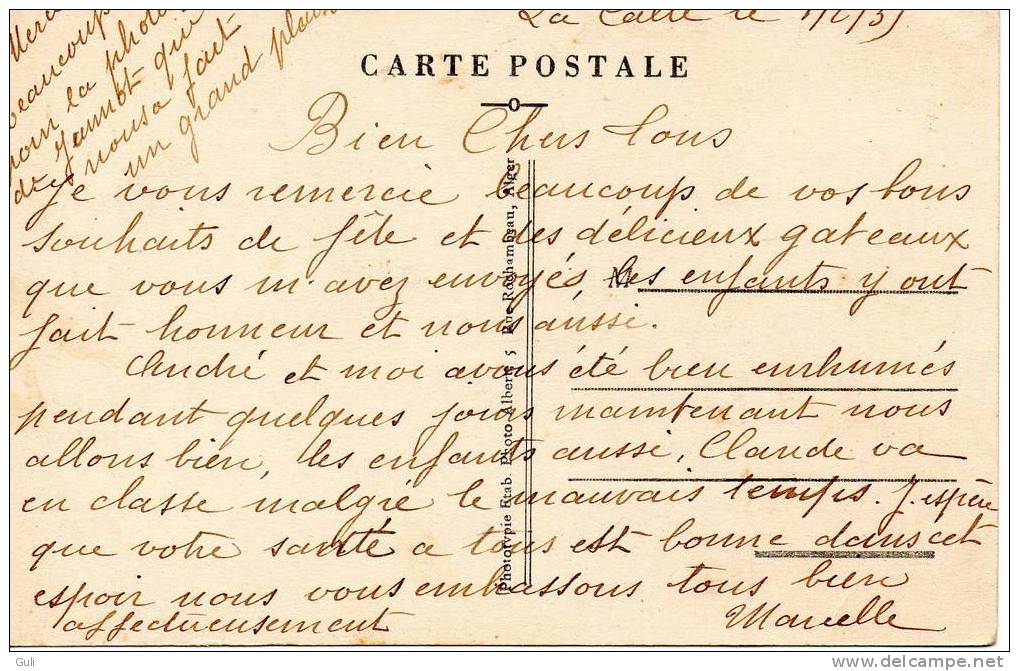 Merci
beaucoup
pour la photo
de Jannot qui
nous a fait
un grand plaisir
La Calle le
CARTE POSTALE
Bien Chers tous
Je vous remercie beaucoup de vos bons
souhaits de fête et des délicieux gateaux
que vous m'avez envoyés, les enfants y ont
fait honneur et nous aussi.
André et moi avons été bien enrhumés
pendant quelques jours maintenant nous
allons bien, les enfants aussi, Claude va
en classe malgré le mauvais temps. J'espère
que votre santé a tous est bonne dans cet
espoir nous vous embrassons tous bien
affectueusement Marcelle
M
Phototypie Etab. Photo-Albert, 5 Rue Rochambeau, Alger
Guli
www.delcampe.net